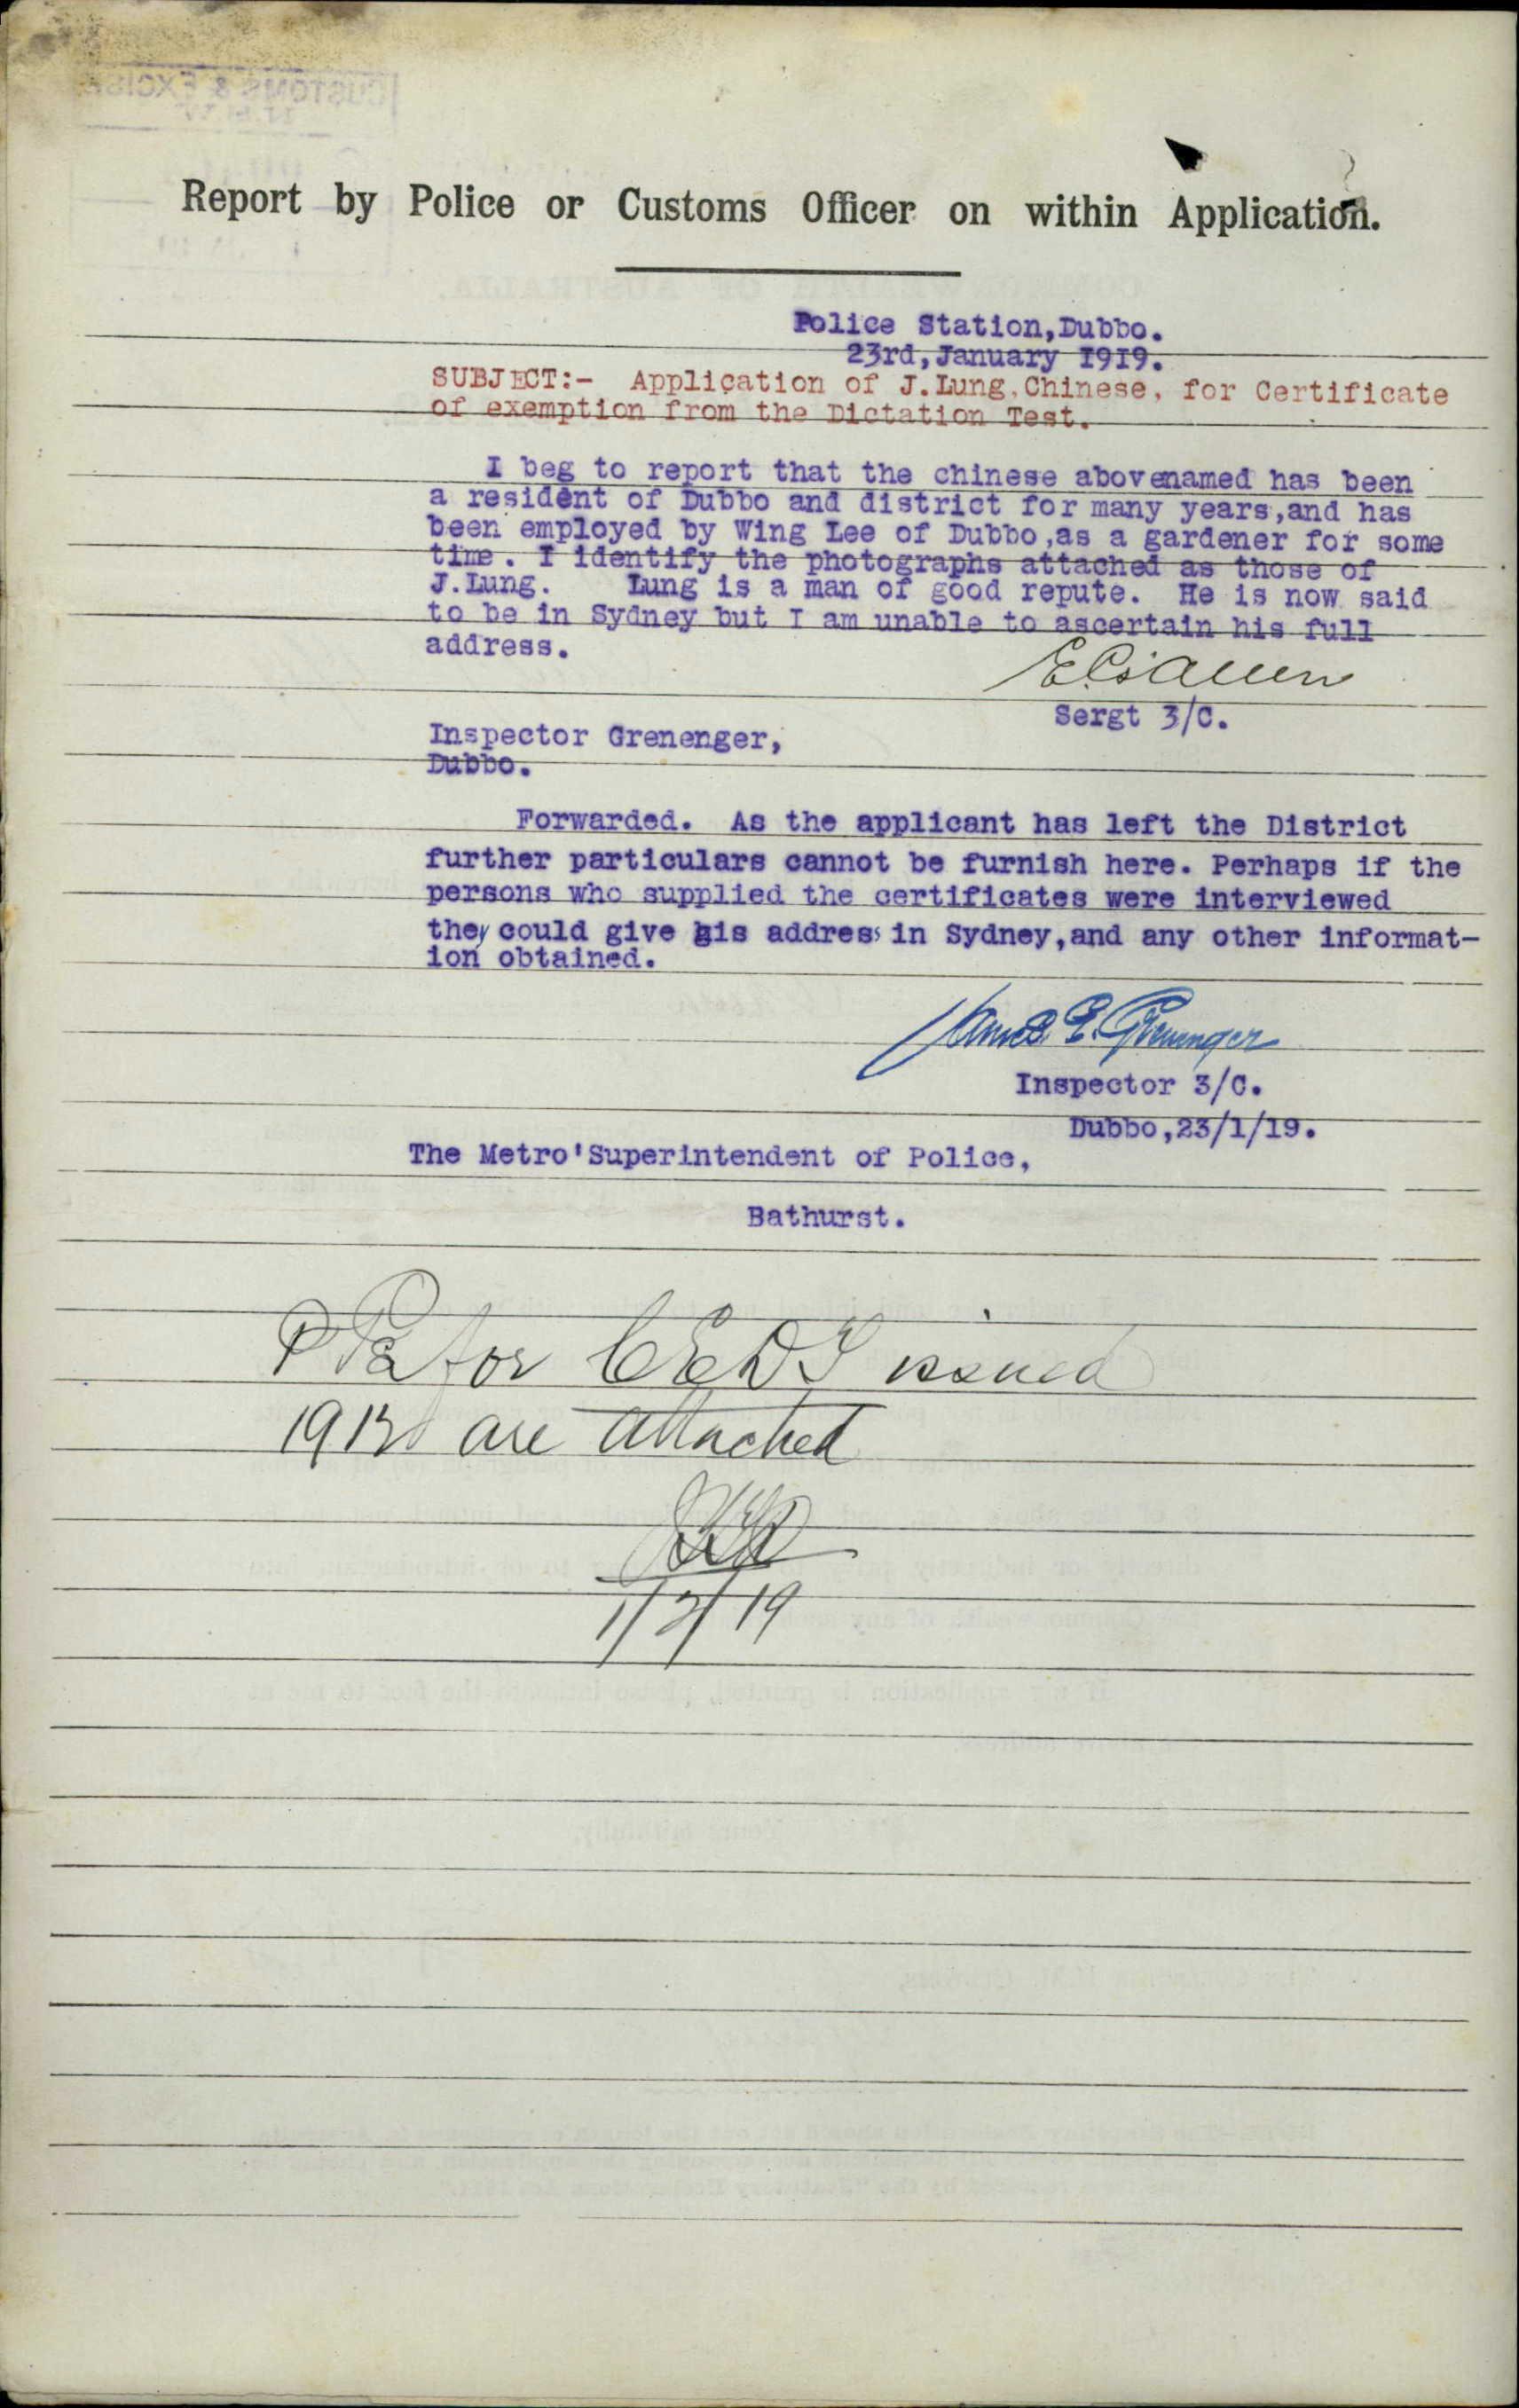 CUSTOMS & EXCISE
Report by Police or Customs Officer on within Application.
Police Station,Dubbo.
23rd,January 1919.
SUBJECT:- Application of J.Lung,Chinese, for Certificate
of exemption from the Dictation Test.
I beg to report that the chinese abovenamed has been
a resident of Dubbo and district for many years,and has
been employed by Wing Lee of Dubbo,as a gardener for some
time. I identify the photographs attached as those of
J.Lung. Lung is a man of good repute. He is now said
to be in Sydney but I am unable to ascertain his full
address.
Sergt 3/C.
Inspector Grenenger,
Dubbo.
Forwarded. As the applicant has left the District
further particulars cannot be furnish here. Perhaps if the
persons who supplied the certificates were interviewed
they could give his address in Sydney,and any other informat-
ion obtained.
James E. Grenenger
Inspector 3/C.
Dubbo,23/1/19.
The Metro'Superintendent of Police,
Bathurst.
for CEDT issued
are attached
1/2/19